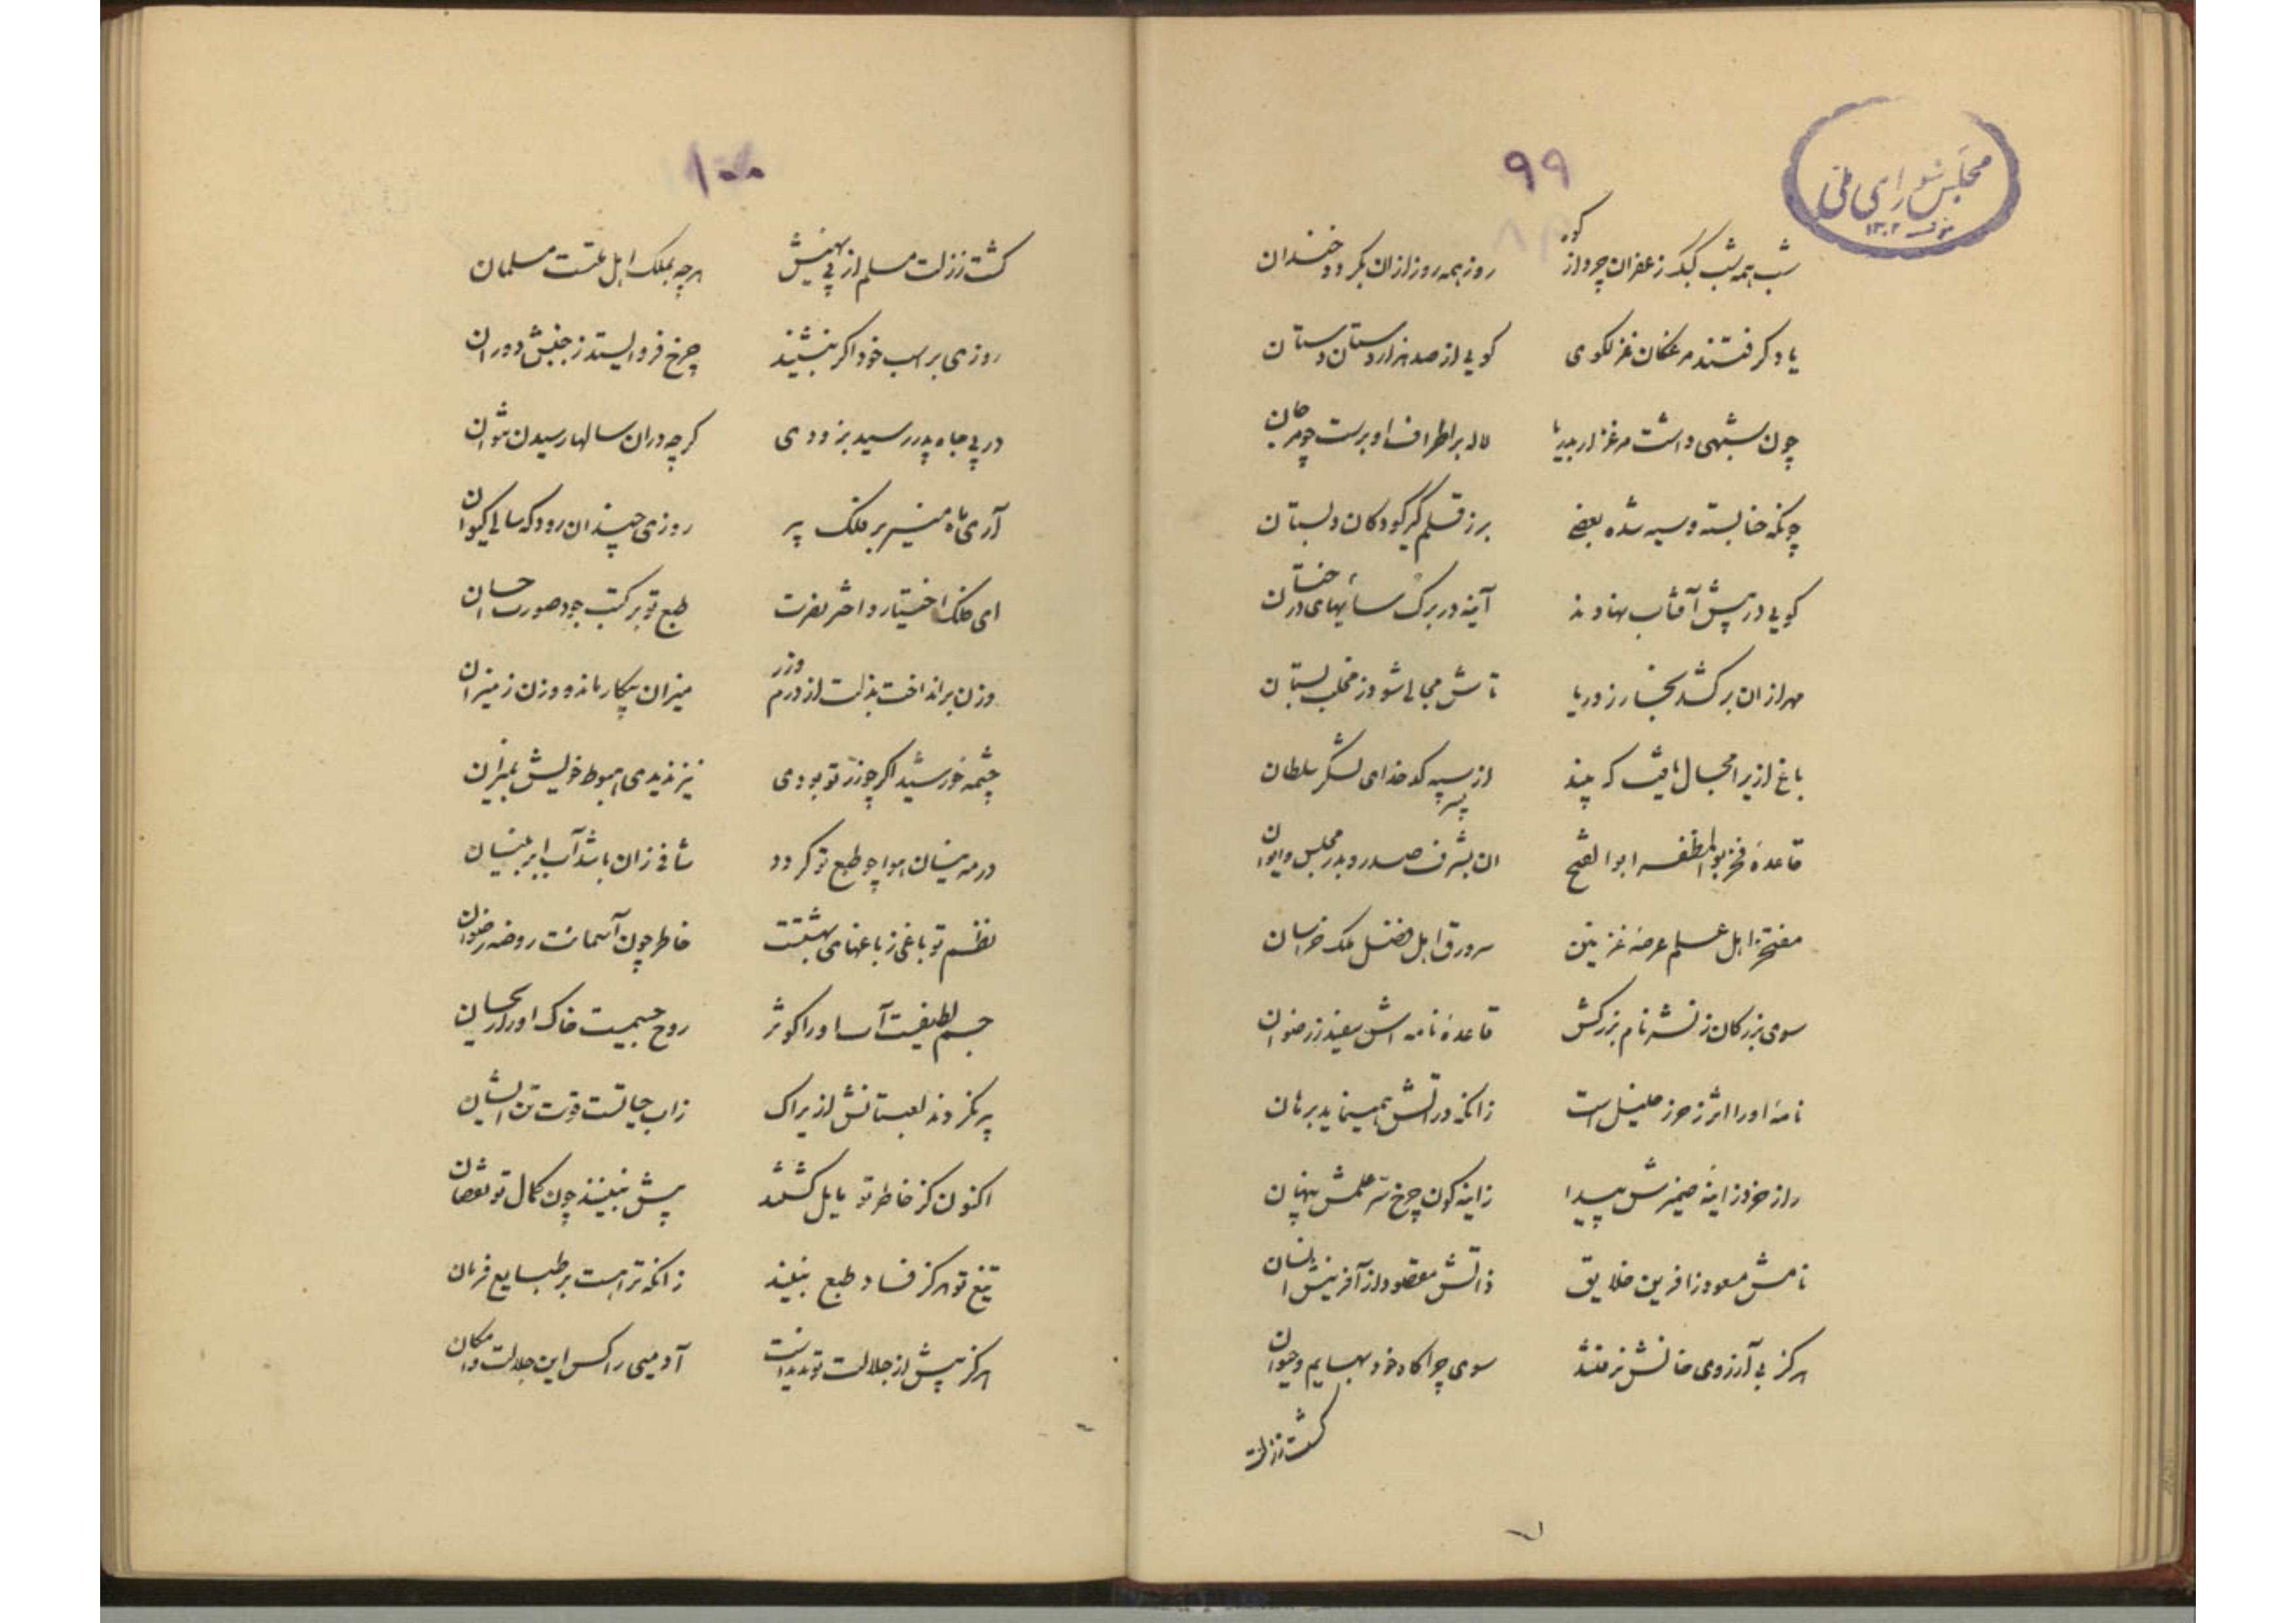 مجلس شورای ملی
۱۳۰۲
۹۹
شب همه شب کبک زعفران چرد از کوه روز همه روز از ان بگردد خندان
یاد گرفتند مرغکان غزلگوی گویی از صد هزار دستان دستان
چون شبهی داشت مرغزار بدریا لاله بر اطراف او برست چو مرجان
چونکه حنا بسته و سیه شده بعضی برز قلم گیر کودکان دبستان
گویی در پیش آفتاب نهادند آینه در برگ سایهای درختان
مهر از ان برکشد بخار ز دریا تاش مجالی شود ز مخلب بستان
باغ ازیرا مجال یافت که بیند از سپه کدخدای لشکر سلطان
قاعدهٔ فخر بوالمظفر ابوالفتح ان بشرف صدر و بدر مجلس و ایوان
مفتخر اهل علم عرصهٔ غزنین سرور اهل فضل ملک خراسان
سوی بزرگان ز نشر نام بزرگش قاعدهٔ نامه اش ز رضوان
نامهٔ او را اثر ز حرز خلیل است زانکه در آتش همینماید برهان
راز خود ز اینهٔ ضمیرش پیدا زاینه گون چرخ سر علمش پنهان
نامش مسعود ز افرین خلایق ذاتش مقصود از آفرینش انسان
هرگز بی آرزوی خانش نرفتند سوی چراگاه خود بهایم و حیوان
گشت ززلت
۱۰۰
گشت ززلت مسلم از پی بهنیش هرچه بملک اهل ملتست مسلمان
روزی بر اسب خود اگر بنشیند چرخ فرو ایستد ز جنبش دوران
در پی جاه پدر رسید بزودی گرچه دران سالها رسیدن نتوان
آری ماه منیر بر فلک پیر روزی چندان رود که سالی کیوان
ای فلک اختیار و اختر نصرت طبع تو بر کتب جود صورت احسان
وزن برانداخت بذلت از درم و زر میزان بیکار ماند و وزن ز میزان
چشمهٔ خورشید اگر چو زر تو بودی نیز ندیدی هبوط خویش بمیزان
در مه نیسان هوا چو طبع تو گردد شافی زان باشد آب ابر بنیسان
نظم تو باغی ز باغهای بهشتست خاطر چون آسمانت روضه رضوان
جسم لطیفیست آسا او را کوثر روح جسمیست خاک او را ریحان
پیر نگردند لعبتانش ازیراک زاب حیاتست قوت تن ایشان
اکنون کز خاطر تو مایل گشتند پیش نبینند چون کمال تو نقصان
تیغ تو هرگز فساد طبع نبیند زانکه ترا هست بر طبایع فرمان
هرگز پیش از جلالت تو ندیدانست آدمیی را کس این جلالت و امکان